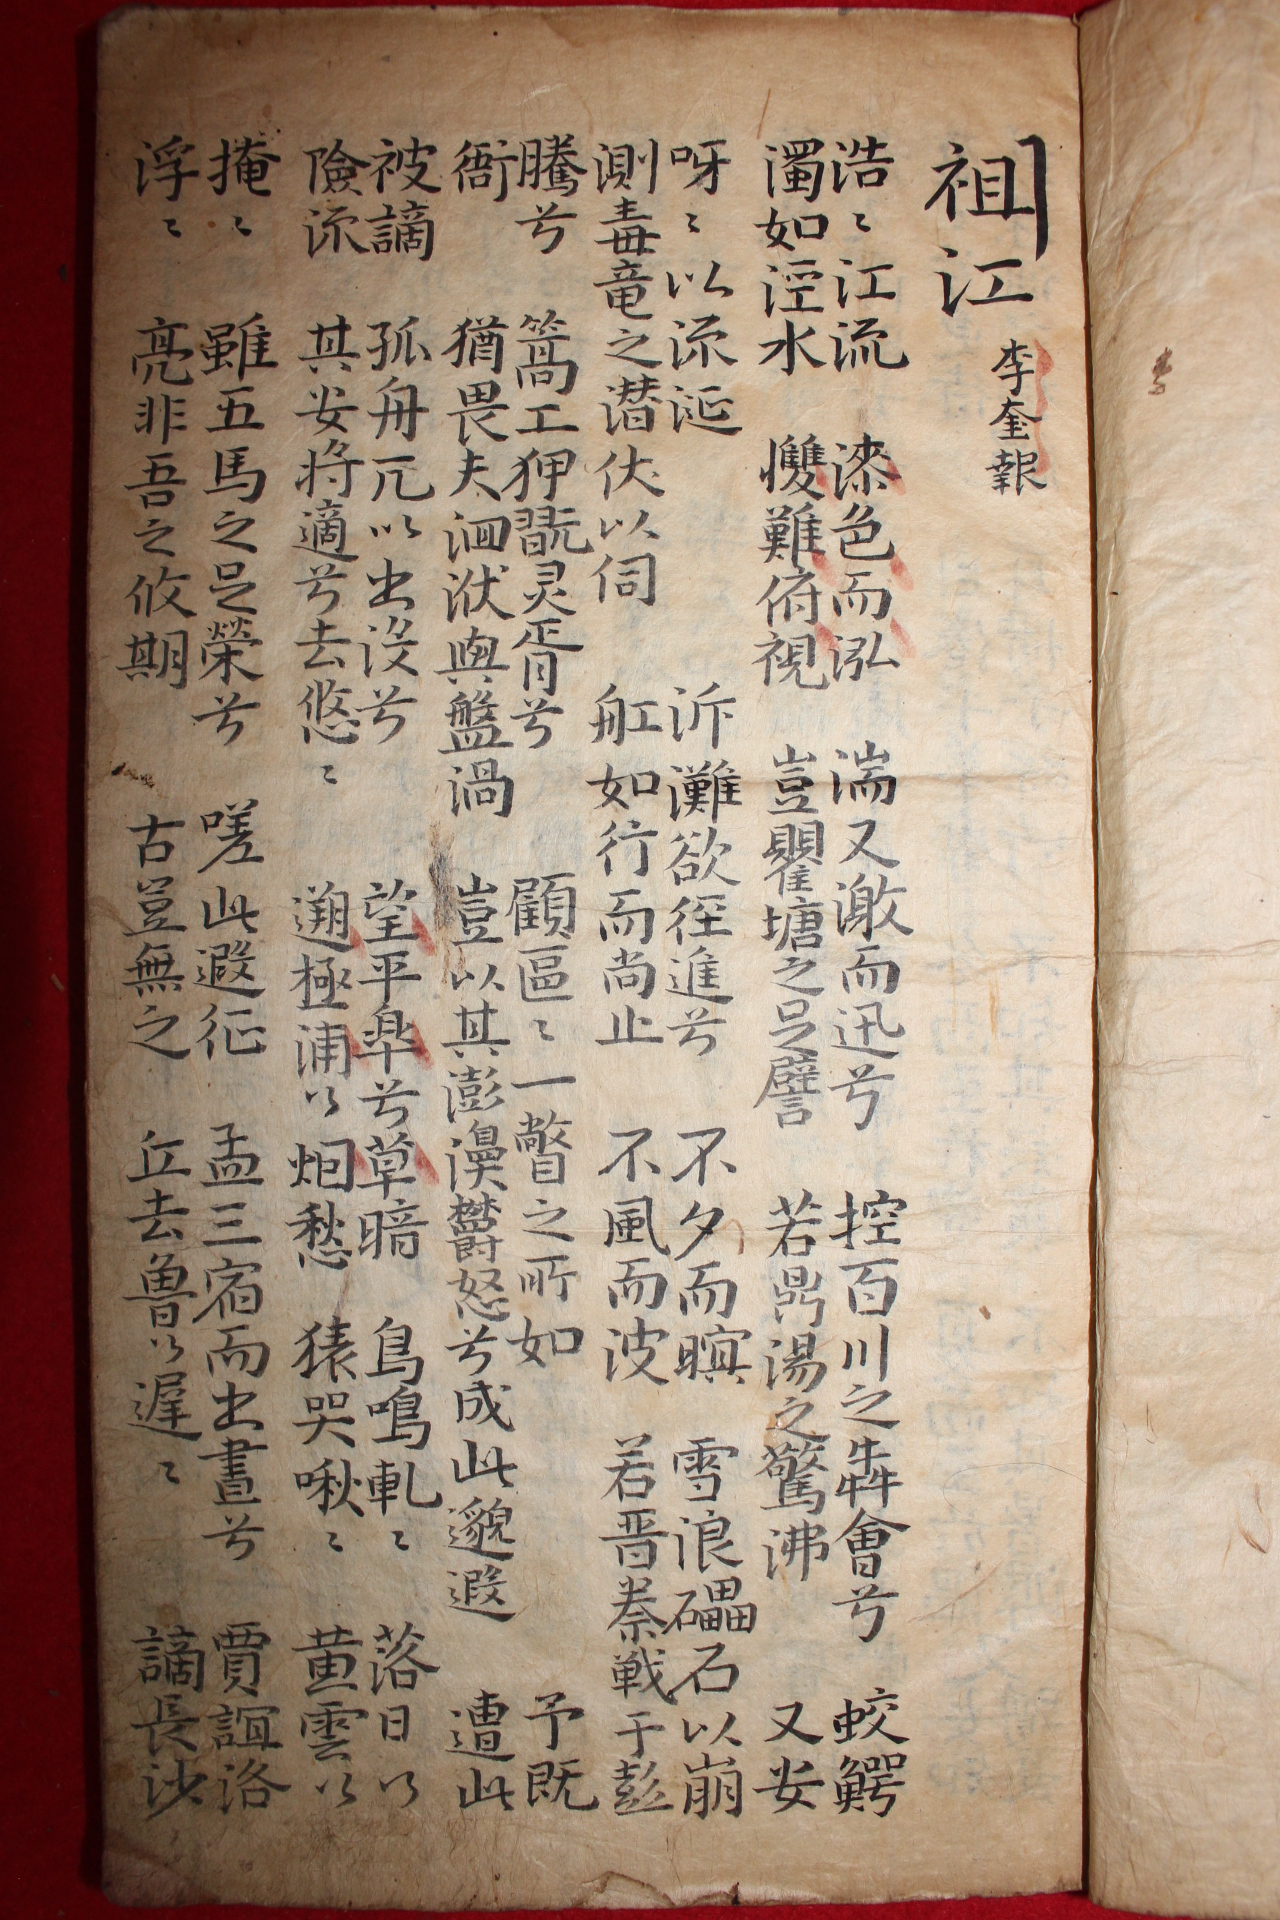 祖江 李奎報
浩〻江流 漆色而泓 湍又激而迅兮 控百川之犇會兮 蛟鰐
濁如涇水 懼難俯視 豈瞿塘之足譬 若鼎湯之驚沸 又安
呀〻以流涎 泝灘欲徑進兮 不夕而暝 雪浪礧石以崩
測毒竜之潜伏以伺 舡如行而尚止 不風而波 若晋秦戦于彭
騰兮 篙工狎翫灵胥兮 顧區〻一瞥之所如 予既
衙 猶畏夫洄洑與盤渦 豈以其澎濞欝怒兮成此邈遐 遭此
被謫 孤舟兀以出没兮 望平皐兮草暗 鳥鳴軋〻 落日以
險流 其安将適兮去悠〻 遡極浦以烟愁 猿哭啾〻 黄雲以
掩〻 雖五馬之足榮兮 嗟此遐征 孟三宿而出晝兮 賈誼洛
浮〻 亮非吾之攸期 古豈無之 丘去魯以遲〻 謫長沙